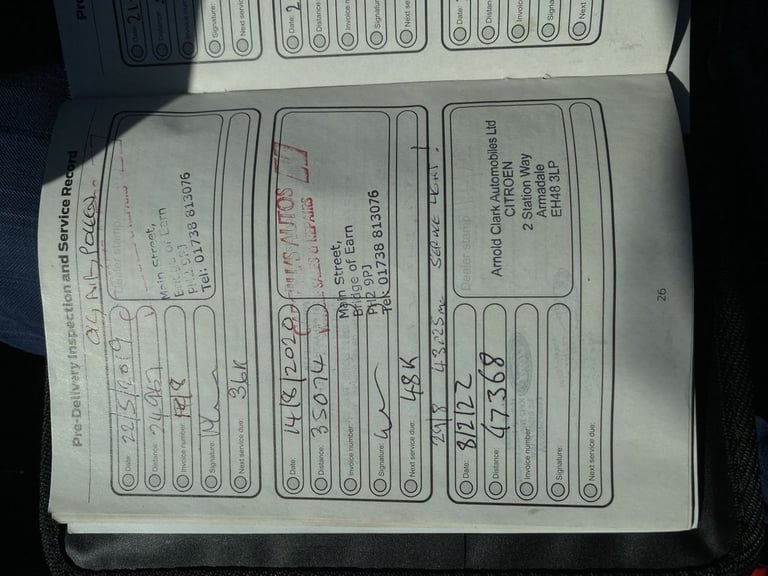 Pre-Delivery Inspection and Service Record
Date: 22/5/2019
Distance:
Invoice number: 18/8
Signature:
Next service due: 36K
Dealer stamp
Main Street,
Bridge of Earn
PH2 9PJ
Tel: 01738 813076
Date: 14/8/2020
Distance: 35074
Invoice number:
Signature:
Next service due: 48K
AUTOS
SALES & REPAIRS
Main Street,
Bridge of Earn
PH2 9PJ
Tel: 01738 813076
29/8 43025m SERVICE LIGHT.
Date: 8/2/22
Distance: 47368
Invoice number:
Signature:
Next service due:
Dealer stamp
Arnold Clark Automobiles Ltd
CITROEN
2 Station Way
Armadale
EH48 3LP
26
Date:
Distance:
Invoice n
Signature:
Next service
Date: 2
Distance:
Invoice n
Signature:
Next se
Date:
Distan
Invoic
Signa
Next